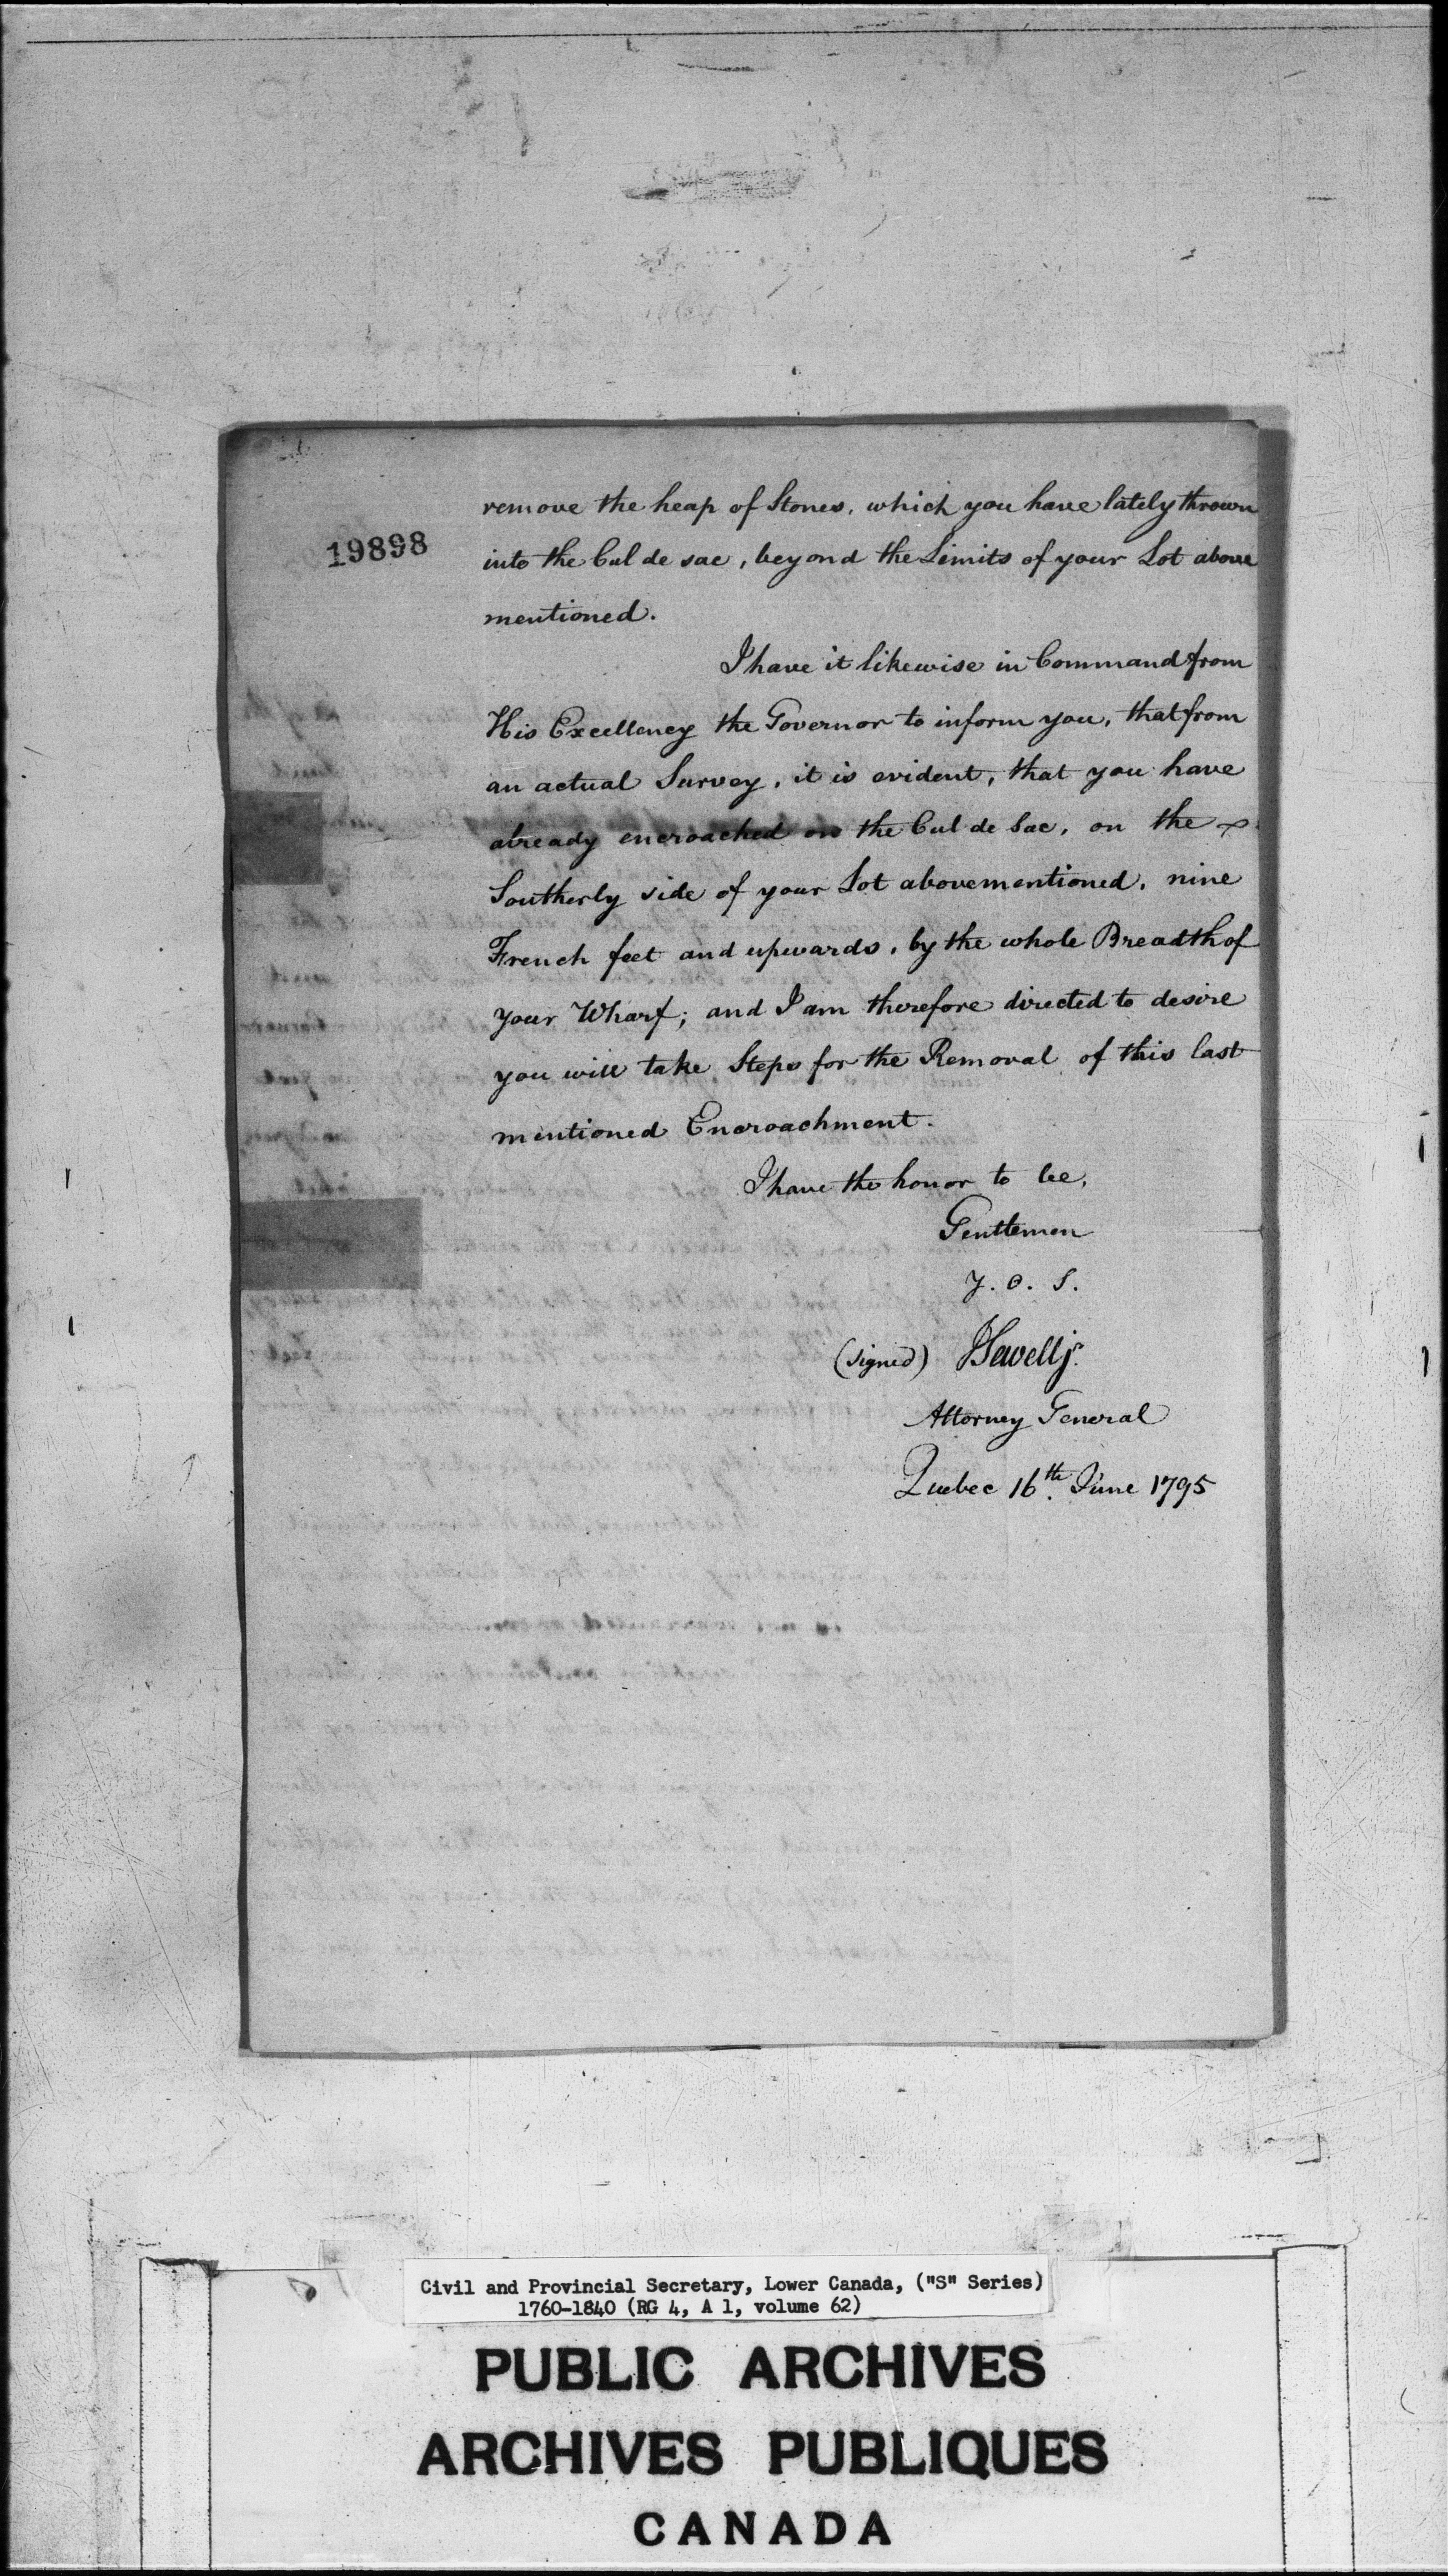 19898
remove the heap of Stones, which you have lately thrown
into the Cul de sac, beyond the Limits of your Lot above
mentioned.
I have it likewise in Command from
His Excellency the Governor to inform you, that from
an actual Survey, it is evident, that you have
already encroached on the Cul de Sac, on the
Southerly side of your Lot abovementioned, nine
French feet and upwards, by the whole Breadth of
your Wharf; and I am therefore directed to desire
you will take Steps for the Removal of this last
mentioned Encroachment.
I have the honor to be,
Gentlemen
Y. O. S.
(signed) J Sewell jr.
Attorney General
Quebec 16th June 1795
Civil and Provincial Secretary, Lower Canada, ("S" Series)
1760-1840 (RG 4, A 1, volume 62)
PUBLIC ARCHIVES
ARCHIVES PUBLIQUES
CANADA